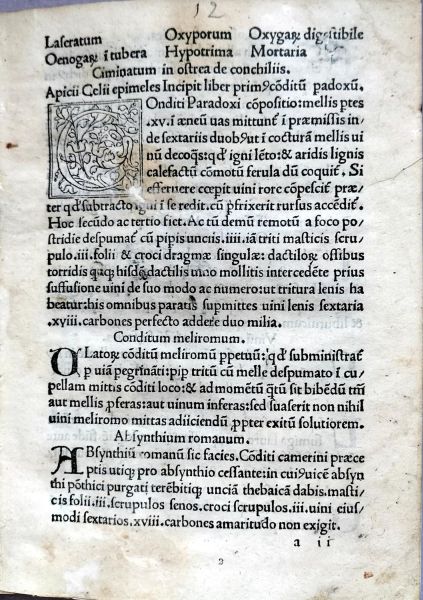 12
Laseratum Oxyporum Oxygaꝝ digestibile
Oenogaꝝ ĩ tubera Hypotrima Mortaria
Ciminatum in ostrea de conchiliis.
Apicii Celii epimeles Incipit liber primꝰ cõditũ padoxũ.
COnditi Paradoxi cõpositio: mellis ptes
.xv. ĩ æneũ uas mittunt̃ ĩ præmissis in/
de sextariis duobꝰ ut ĩ cocturã mellis ui
nũ decoq̃s: qđ igni lẽto: & aridis lignis
calefactũ cõmotũ ferula dũ coquit̃. Si
efferuere cœpit uini rore cõpescit̃ præ/
ter qđ subtracto igni ĩ se redit. cũ pfrixerit rursus accẽdit̃.
Hoc secũdo ac tertio fiet. Ac tũ demũ remotũ a foco po/
stridie despumat̃ cũ pipis unciis .iiii. iã triti masticis scru/
pulo .iii. folii & croci dragmæ singulæ: dactiloꝝ ossibus
torridis quinq; hisdẽq; dactilis uino mollitis intercedẽte prius
suffusione uini de suo modo ac numero: ut tritura lenis ha
beatur: his omnibus paratis supmittes uini lenis sextaria
.xviii. carbones perfecto addere duo milia.
Conditum meliromum.
OLatoꝝ cõditũ meliromũ ppetuũ: qđ subministrat̃
p uiã pegrĩnati: pip tritũ cũ melle despumato ĩ cu/
pellam mittis cõditi loco: & ad momẽtũ q̃tũ sit bibẽdũ tm̃
aut mellis pferas: aut uinum inferas: sed suaserit non nihil
uini meliromo mittas adiiciendũ ppter exitũ solutiorem.
Absynthium romanum.
ABsynthiũ romanũ sic facies. Cõditi camerini præce
ptis utiq; pro absynthio cessante: in cuiꝰ uicẽ absyn
thi põthici purgati terẽbitiq; unciã thebaicã dabis. masti/
cis folii .iii. scrupulos senos. croci scrupulos .iii. uini eius/
modi sextarios .xviii. carbones amaritudo non exigit.
a ii